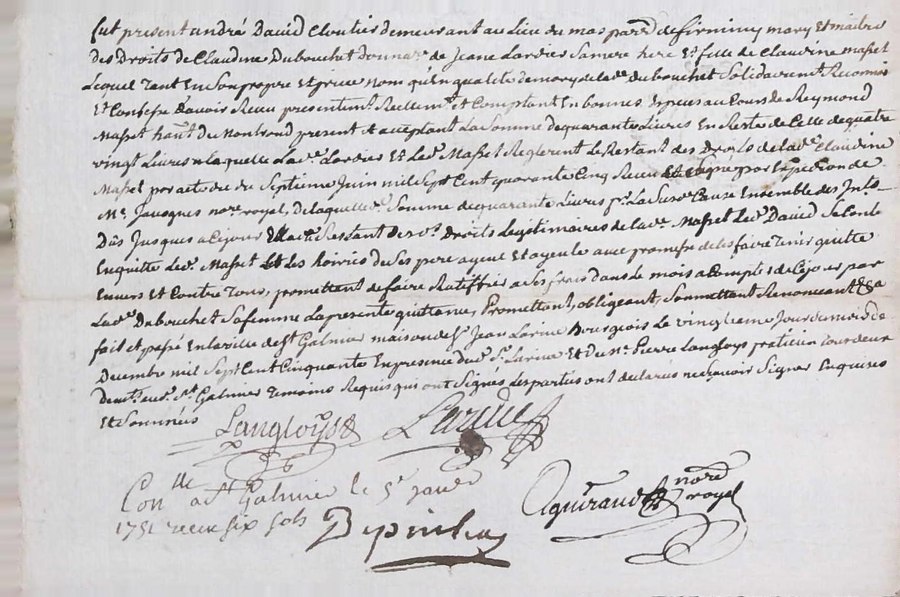 fut present andré David Cloutier demeurant au Lieu du mas par. de firminy mary et maitre
des Droits de Claudine Dubouchet donnatre de Jeane Lardier sa mere here et fille de Claudine Masset
Lequel tant en son propre et prive nom qu'en qualité de mary de lade dubouchet Solidairement Reconnu
et Confesse Davoir Reçu presentent Reellemt et Comptant en bonnes Especes au Cours de Reymond
Masset hant du Montrond present et acceptant La Somme de quarante Livres En Reste de Celle de quatre
vingt Livres a laquelle Lade Lardier Et Led. Masset Reglerent Le Restant des Droits de lade Claudine
Masset par acte du du Septieme Juin mil Sept Cent quarante Cinq Reçu Et Expedition de
Me Jacognes nore royal, De laquelle Somme de quarante Livres pr La Suse Cause Ensemble des Ints
Dûs Jusques a Cejour Restant des Droits Legitimaires de lade Masset Led. David Se Contente
En quitte Led. Masset Et Les hoiries de Ses pere ayeul Et ayeule avec promesse de les faire tenir quitte
Envers Et Contre tous, promettant de faire Ratiffier a Ses frais dans Le mois a Compter de Cejour par
Lade Dubouchet Sa femme La presente quittance, Promettant, obligeant, Soumettant Renonceant &a
fait et passé En la ville de St Galmier maison de Sr Jean Larine Bourgeois Le vingtieme Jour du mois de
Decembre mil Sept Cent Cinquante En presence dud. Sr Larine Et de Me Pierre Langloys praticien tous deux
demts aud. St Galmier temoins Requis qui ont Signés Les parties ont declarés ne Sçavoir Signer Enquises
Et Sommées
Langloys Larine
Conlle a St Galmier le 5e janer
1751 reçu six sols
Depinhac
Aguiraud nore royal